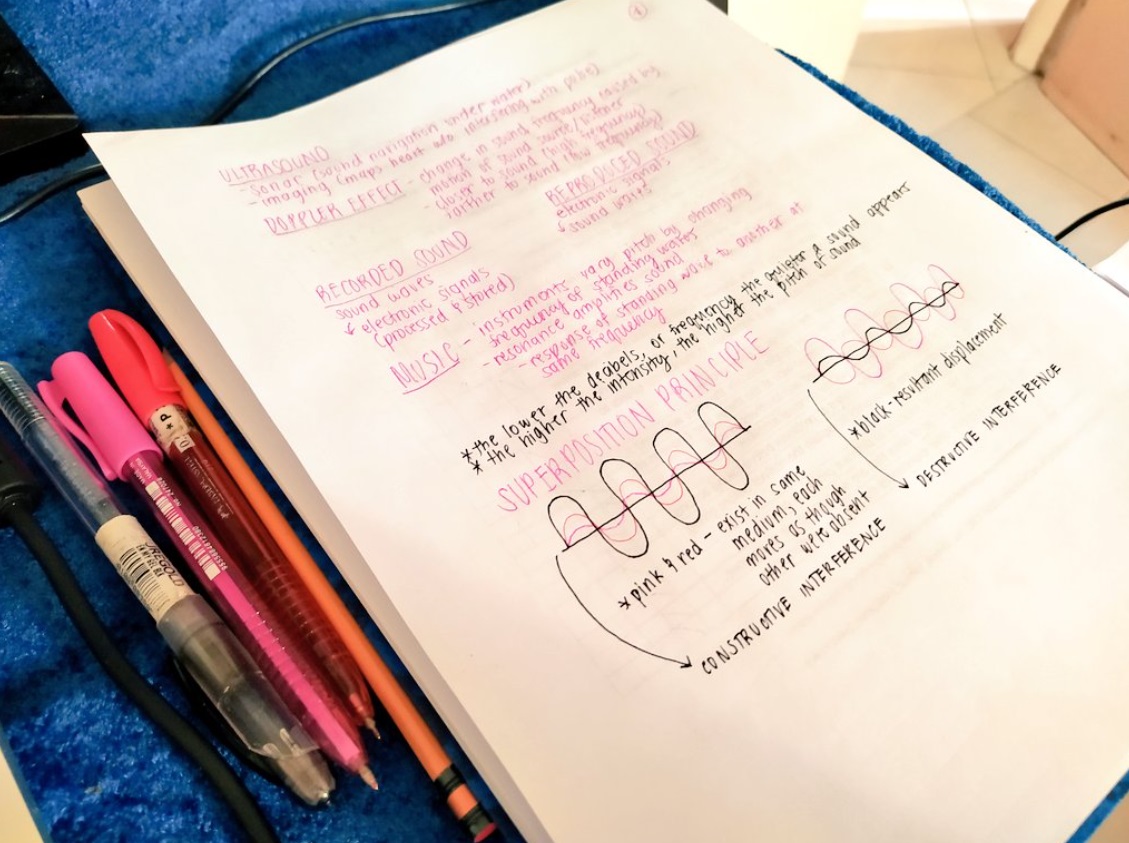 1
ULTRASOUND
- sonar (sound navigation under water)
- imaging (maps heart w/o interfering with pulse)
DOPPLER EFFECT - change in sound frequency caused by
motion of sound source/listener
- closer to sound (high frequency)
farther to sound (low frequency)
RECORDED SOUND
sound waves
↓ electronic signals
(processed & stored)
REPRODUCED SOUND
electronic signals
↓ sound waves
MUSIC - instruments vary pitch by changing
frequency of standing waves
- resonance amplifies sound
- response of standing wave to another at
same frequency
*the lower the decibels, or frequency the quieter a sound appears
* the higher the intensity, the higher the pitch of sound
SUPERPOSITION PRINCIPLE
*pink & red - exist in same
medium, each
moves as though
other were absent
CONSTRUCTIVE INTERFERENCE
*black - resultant displacement
DESTRUCTIVE INTERFERENCE